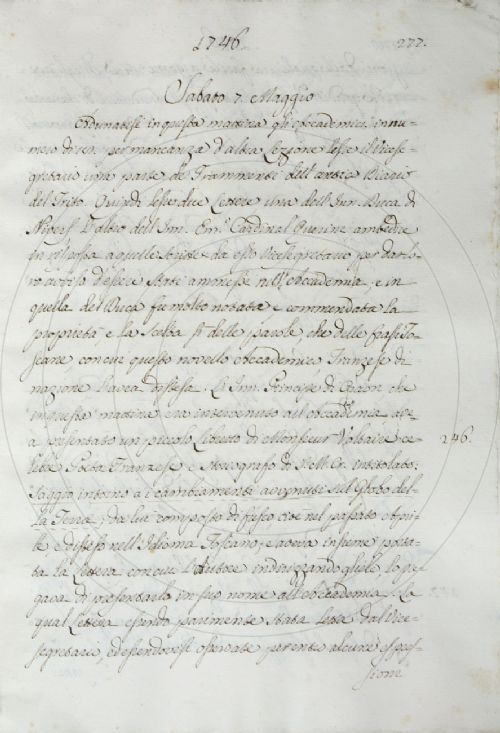 1746
277.
Sabato 7. Maggio
Adunatisi in questa mattina gli Accademici in nu-
mero di sei, per mancanza d'altra Lezione lesse il Vice-
gretario una parte de Frammenti dell'antico Diario
del Trito. Quindi lesse due Lettere una dell' Inn. Duca di
Nivers, l'altra dell' Im. Em.o Cardinal Querini ambedue
in risposta a quelle scritte da esso Vicesegretario per dar lo-
ro avviso d'essere stati ammessi nell' Accademia, e in
quella del Duca fu molto notata e commendata la
proprietà e la scelta sì delle parole, che delle frasi To-
scane con cui questo novello Accademico, Franzese di
nazione l'avea distesa. L' Inn. Principe di Craon che
in questa mattina era intervenuto all' Accademia ave-
a presentato un piccolo Libretto di Monsieur Voltaire ce-
246.
lebre Poeta Franzese e Storiografo di S. M. Cr. intitolato:
Saggio intorno a i cambiamenti avvenuti sul Globo del-
la Terra, da lui composto di fresco cioè nel passato Apri-
le e disteso nell' Idioma Toscano, e aveva insieme porta-
ta la Lettera con cui l'Autore indirizzandogliele, lo pre-
gava di presentarlo in suo nome all' Accademia. La
qual Lettera essendo parimente stata letta dal Vice-
segretario, ed essendovisi osservate parimente alcune espres-
sione